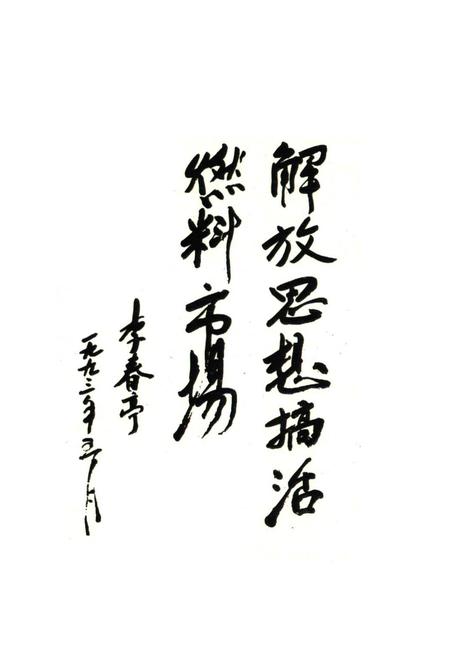 解放思想搞活
燃料市場
李春亭
一九九三年五月